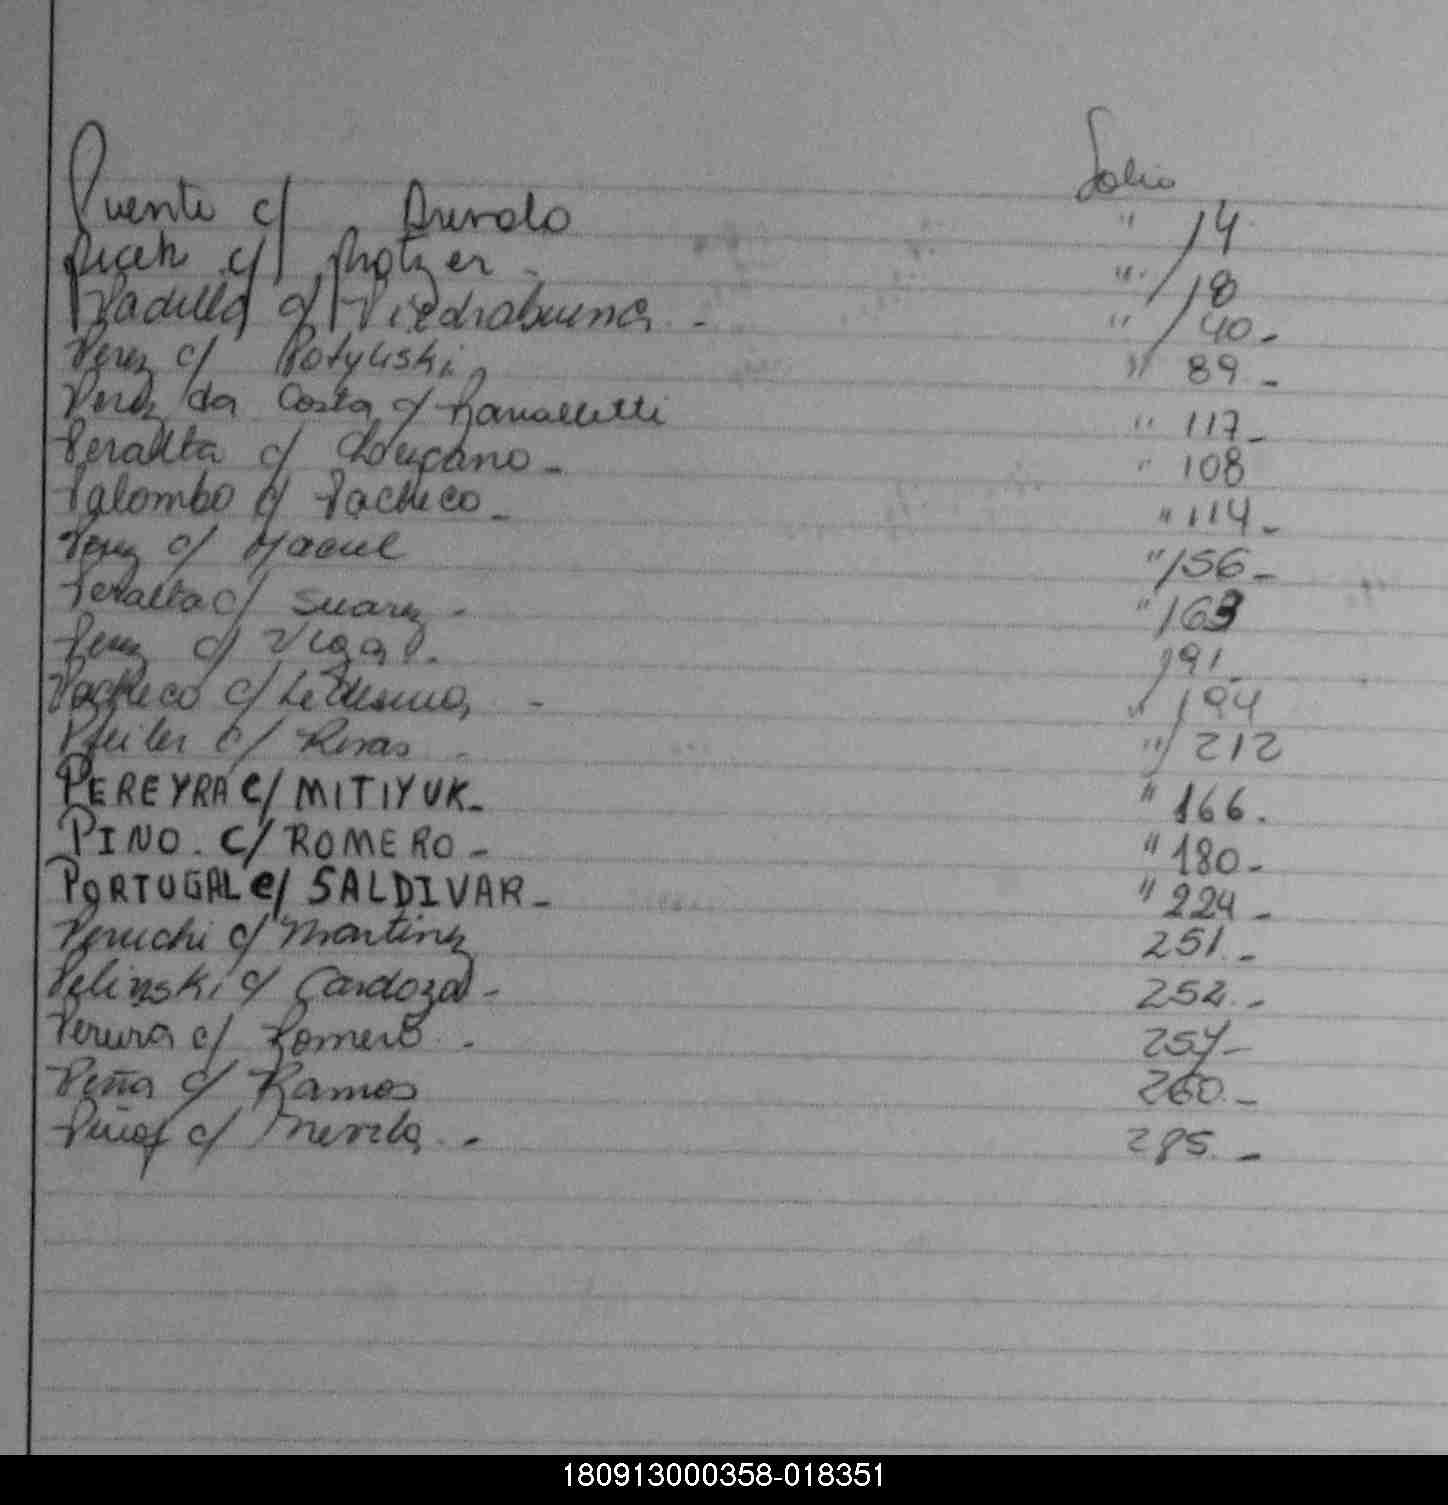 Folio
Puente c/ Arevalo " 14
c/ " 18
Padilla c/ Piedrabuena - " 40 -
Perez c/ Potyliski " 89 -
Perez da Costa c/ " 117 -
Peralta c/ - " 108
Palombo c/ Pacheco - " 114 -
Perez c/ Yacul " 156 -
Peralta c/ Suarez - " 163
Perez c/ Vega - 191 -
Pacheco c/ Ledesma - " 194
Pfeiler c/ Rivas - " 212
PEREYRA C/ MITIYUK - " 166.
PINO. C/ ROMERO - " 180 -
PORTUGAL C/ SALDIVAR - " 224 -
Peruchi c/ Martinez 251. -
Pelinski c/ Cardozo - 252. -
Pereira c/ Romero. - 257 -
Peña c/ Ramos 260. -
c/ - 285. -
180913000358-018351